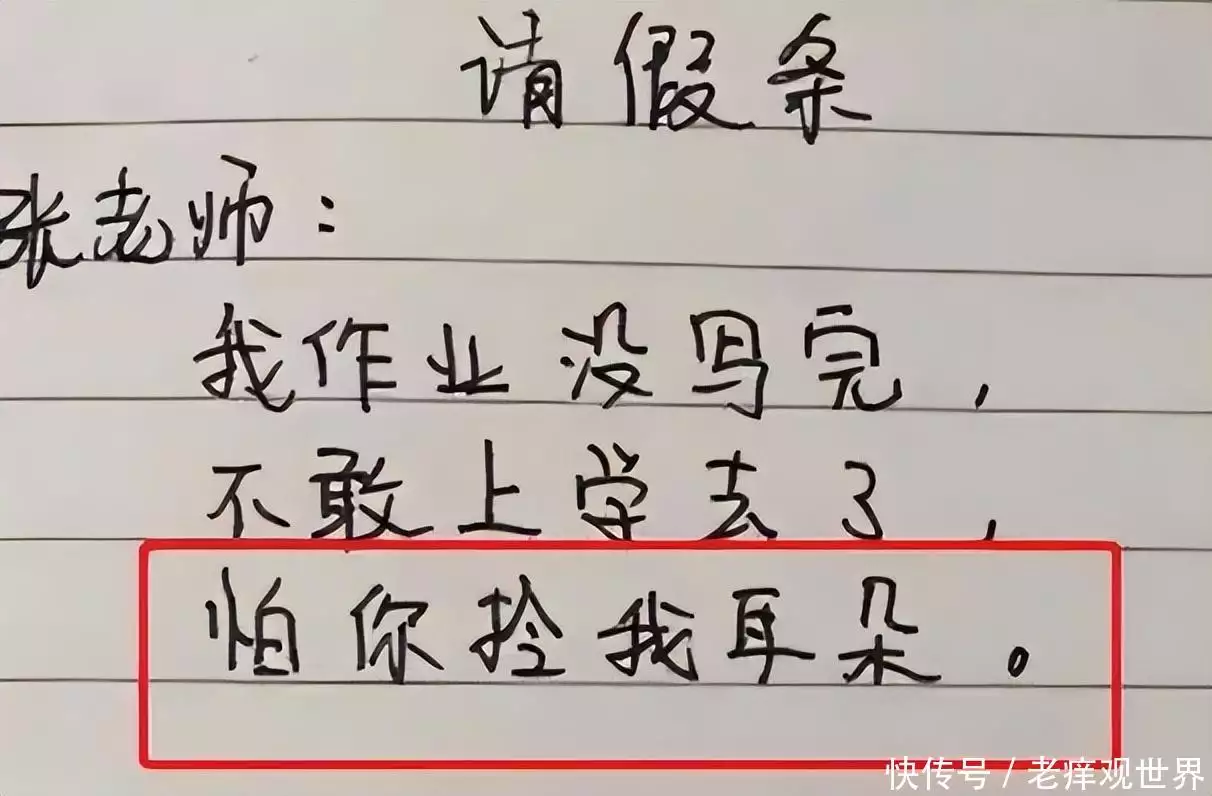 请假条
张老师:
我作业没写完,
不敢上学去了,
怕你拴我耳朵。
快传号/老痒观世界